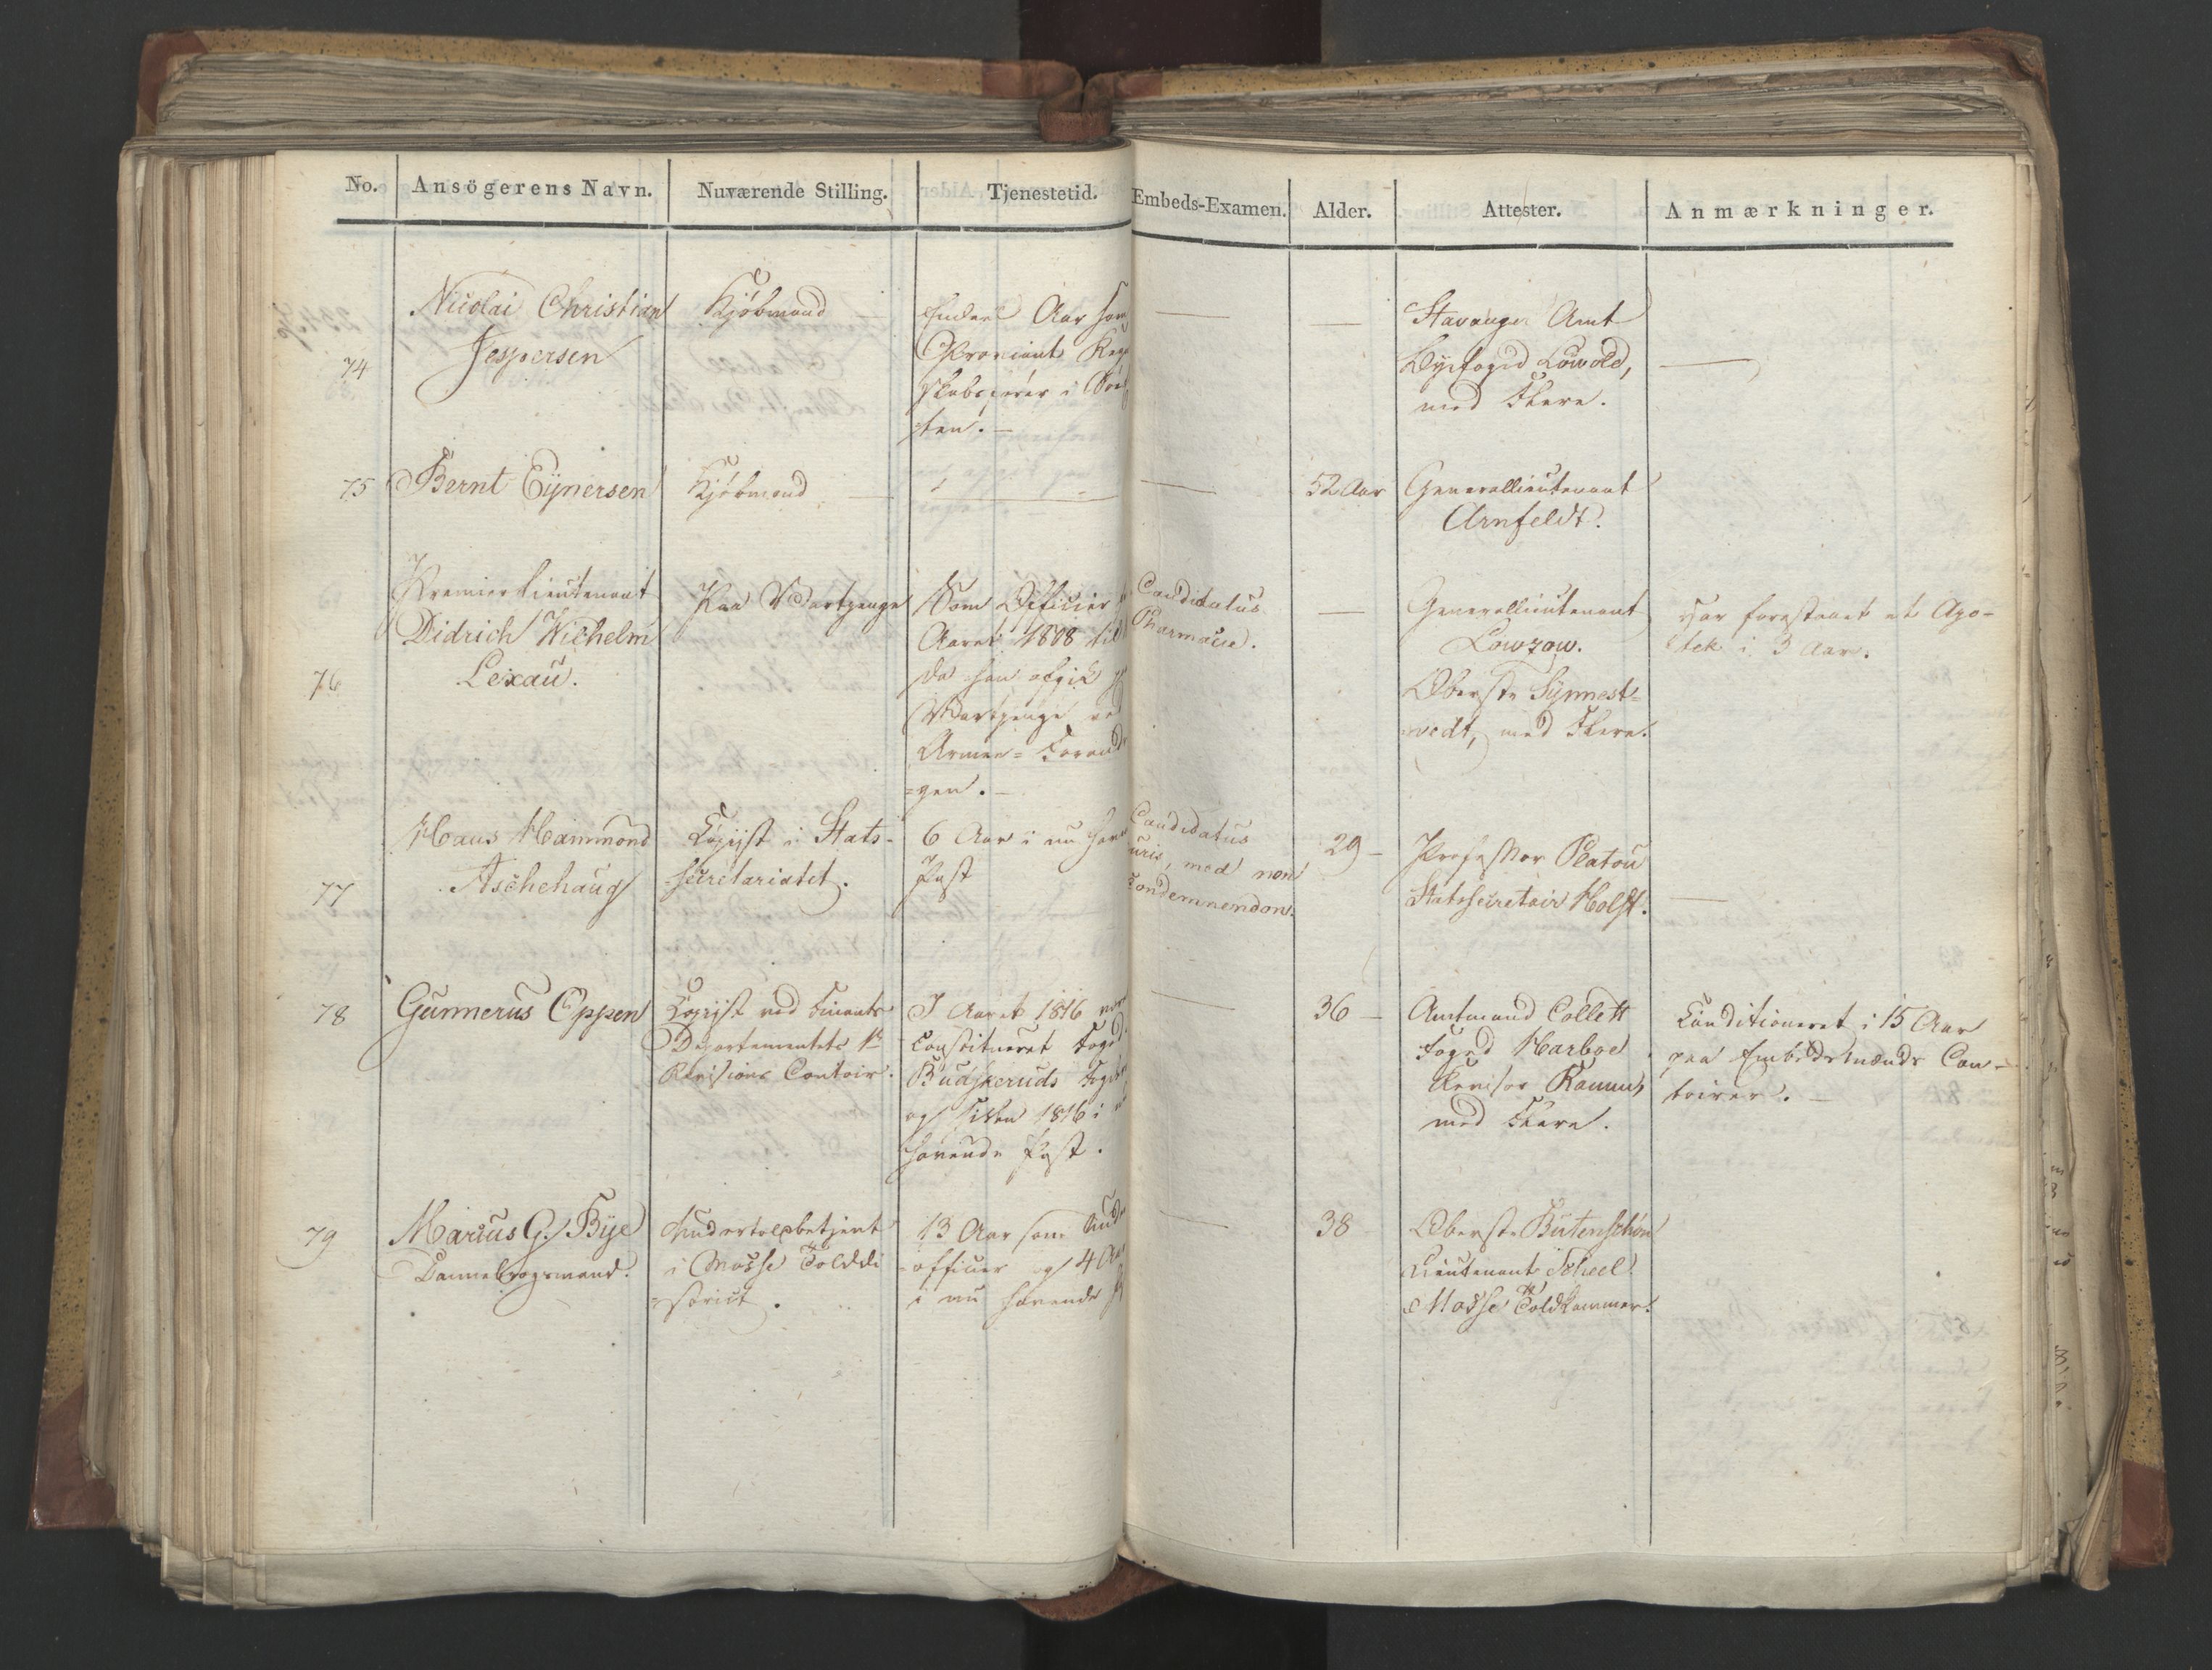 No. Ansögerens Navn. Nuværende Stilling. Tjenestetid. Embeds-Examen. Alder. Attester. Anmærkninger.
74
Nicolai Christian
Jespersen
Kjöbmand
Aar som
Proviant
i
sten.
Stavanger Amt
Byefoged Löwold,
med Flere.
75
Bernt Eynersen
Kjöbmand
52 Aar
Generallieutenant
Arnfeldt.
76
Premierlieutenant
Didrich Wilhelm
Lexau.
Paa Vartpenge
Som Officier
Aaret 1808 til
da han afgik
Vartpenge ved
Armee-Forand
-gen.
Candidatus
Pharmacie.
Generallieutenant
Lowzow.
Oberste Synnest-
vedt, med Flere.
Har forestaaet et Apo-
tek i 3 Aar.
77
Hans Hammond
Aschehaug
Copiist i Stats-
secretariatet.
6 Aar i nu hav
Post
Candidatus
uris, med non
Condemnendus.
29
Professor Platou
Statssecretair Holst.
78
Gunnerus Eppen
Copiist ved Finants
Departementets 1ste
Revisions Contoir.
I Aaret 1816
Constitueret Foged
Budskeruds Fogd
og siden 1816 i
havende Post.
36
Amtmand Collett
Foged Harboe
Revisor Ramm,
med Flere.
Conditioneret i 15 Aar
paa Embedsmænds Con-
toirer.
79
Marius G. Bye
Dannebrogsmand.
Undertoldbetjent
i Mosse Tolddi
-strict.
13 Aar som Und
-officier og 4 Aar
i nu havende
38
Oberste Butenschön
Lieutenant Scheel.
Mosse Toldkammer.